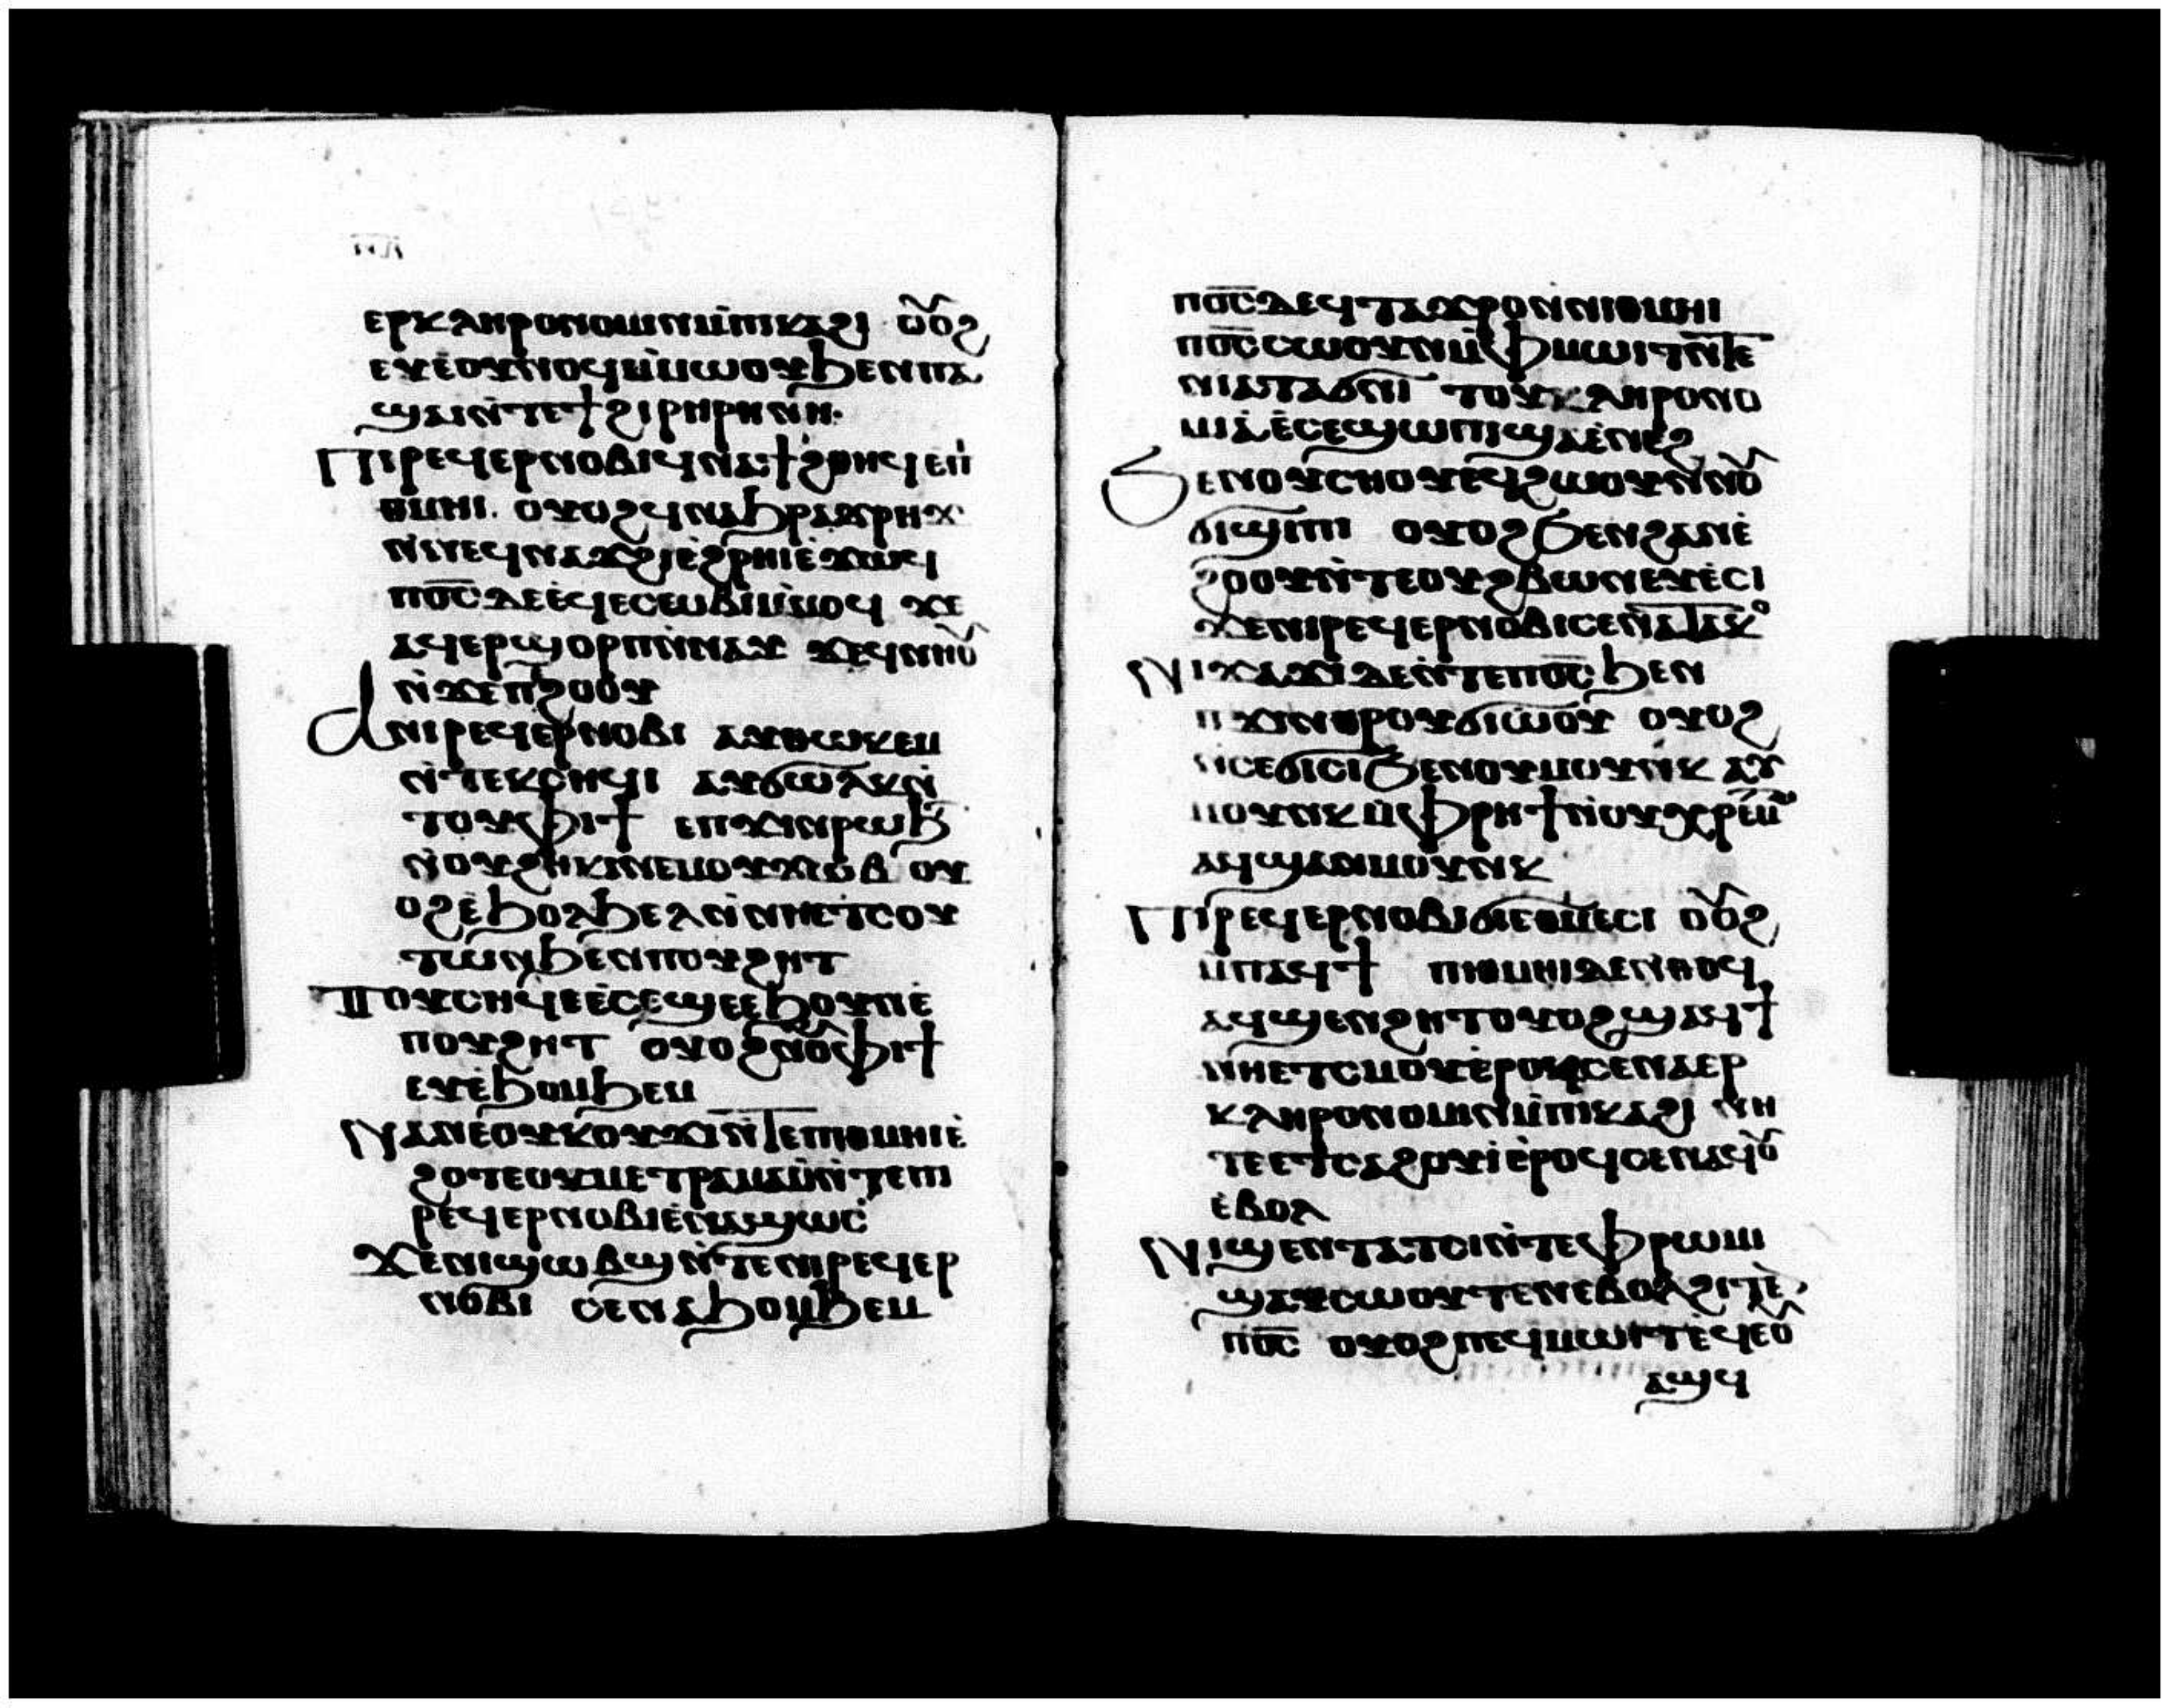 ⲉⲣⲕⲗⲏⲣⲟⲛⲟⲙⲓⲛⲙ̀ⲡⲓⲕⲁϩⲓ ⲟⲩⲟϩ
ⲉⲩⲉ̀ⲟⲩⲛⲟϥⲙ̀ⲙⲱⲟⲩϧⲉⲛⲡⲁ
ϣⲁⲓⲛ̀ⲧⲉϯϩⲓⲣⲏⲣⲏⲛⲏ·
Ⲡⲓⲣⲉϥⲉⲣⲛⲟⲃⲓϥⲛⲁϯϩⲑⲏϥⲉⲡⲓ
ⲑⲙⲏⲓ. ⲟⲩⲟϩϥⲛⲁϧⲣⲁϫⲣⲏϫ
ⲛ̀ⲛⲉϥⲛⲁϫϩⲓⲉ̀ϩⲣⲏⲓⲉ̀ϫⲱϥ
ⲡⲟ̅ⲥ̅ⲇⲉⲉ̀ϥⲉⲥⲉⲱⲃⲓⲙ̀ⲙⲟϥ ϫⲉ
ⲁϥⲉⲣϣⲟⲣⲡⲛ̀ⲛⲁⲩ ϫⲉϥⲛⲏⲩ
ⲛ̀ϫⲉⲡⲉϩⲟⲟⲩ
Ⲁⲛⲓⲣⲉϥⲉⲣⲛⲟⲃⲓ ⲁⲩⲑⲱⲕⲉⲙ
ⲛ̀ⲧⲉⲕⲥⲏϥⲓ ⲁⲩϭⲱⲗⲕⲛ̀
ⲧⲟⲩⲫⲓϯ ⲉⲡϫⲓⲛⲣⲱϧ
ⲛ̀ⲟⲩϩⲏⲕⲓⲛⲉⲙⲟⲩϫⲱⲃ ⲟⲩ
ⲟϩⲉ̀ϧⲟⲗϧⲉⲗⲛ̀ⲛⲏⲉⲧⲥⲟⲩ
ⲧⲱⲛϧⲉⲛⲡⲟⲩϩⲏⲧ
Ⲧⲟⲩⲥⲏϥⲉⲉ̀ⲥⲉϣⲉⲉ̀ϧⲟⲩⲛⲉ̀
ⲡⲟⲩϩⲏⲧ ⲟⲩⲟϩⲛⲟⲩⲫⲓϯ
ⲉⲩⲉ̀ϧⲟⲙϧⲉⲙ
Ⲛⲁⲛⲉⲟⲩⲕⲟⲩϫⲓⲛ̀ⲧⲉⲡⲓⲑⲙⲏⲓⲉ̀
ϩⲟⲧⲉⲟⲩⲙⲉⲧⲣⲁⲙⲁⲟ̀ⲛ̀ⲧⲉⲡⲓ
ⲣⲉϥⲉⲣⲛⲟⲃⲓⲉⲛⲁϣⲱⲥ
Ϫⲉⲛⲓϣⲱⲃϣⲛ̀ⲧⲉⲛⲓⲣⲉϥⲉⲣ
ⲛⲟⲃⲓ ⲥⲉⲛⲁϧⲟⲙϧⲉⲙ
ⲡⲟ̅ⲥ̅ⲇⲉϥⲧⲁϫⲣⲟⲛ̀ⲛⲓⲑⲙⲏⲓ
ⲡⲟ̅ⲥ̅ⲥⲱⲟⲩⲛⲙ̀ⲫⲙⲱⲓⲧⲛ̀ⲧⲉ
ⲛⲓⲁⲧⲁϭⲛⲓ ⲧⲟⲩⲕⲗⲏⲣⲟⲛⲟ
ⲙⲓⲁ̀ⲉ̀ⲥⲉϣⲱⲡⲓϣⲁⲉ̀ⲛⲉϩ
Ϧⲉⲛⲟⲩⲥⲏⲟⲩⲉϥϩⲱⲟⲩⲛ̀ⲛⲟⲩ
ϭⲓϣⲓⲡⲓ ⲟⲩⲟϩϧⲉⲛϩⲁⲛⲉ̀
ϩⲟⲟⲩⲛ̀ⲧⲉⲟⲩϩⲃⲱⲛⲉⲩⲉ̀ⲥⲓ
ϫⲉⲛⲓⲣⲉϥⲉⲣⲛⲟⲃⲓⲥⲉⲛⲁⲧⲁⲕⲟ
Ⲛⲓϫⲁϫⲓⲇⲉⲛ̀ⲧⲉⲡⲟ̅ⲥ̅ϧⲉⲛ
ⲡϫⲓⲛⲑⲣⲟⲩϭⲓⲱⲟⲩ ⲟⲩⲟϩ
ⲛ̀ⲥⲉϭⲓⲥⲓϧⲉⲛⲟⲩⲙⲟⲩⲛⲕ ⲁⲩ
ⲙⲟⲩⲛⲕⲙ̀ⲫⲣⲏϯⲛ̀ⲟⲩⲭⲣⲉⲙⲧⲥ
ⲁϥϣⲁⲛⲙⲟⲩⲛⲕ
Ⲡⲓⲣⲉϥⲉⲣⲛⲟⲃⲓϭⲓⲉⲑⲙⲉⲥⲓ ⲟⲩⲟϩ
ⲙ̀ⲡⲁϥϯ ⲡⲓⲑⲙⲏⲓⲇⲉⲛ̀ⲑⲟϥ
ⲁϥϣⲉⲛϩⲏⲧⲟⲩⲟϩϣⲁϥϯ
ⲛⲏⲉⲧⲥⲙⲟⲩⲉ̀ⲣⲟϥⲥⲉⲛⲁⲉⲣ
ⲕⲗⲏⲣⲟⲛⲟⲙⲓⲛⲙ̀ⲡⲓⲕⲁϩⲓ ⲛⲏ
ⲧⲉⲉⲧⲥⲁϩⲟⲩⲓ̀ⲉ̀ⲣⲟϥⲥⲉⲛⲁϥⲟⲩ
ⲉ̀ⲃⲟⲗ
Ⲛⲓϣⲉⲛⲧⲁⲧⲥⲓⲛ̀ⲧⲉⲫⲣⲱⲙⲓ
ϣⲁⲩⲥⲱⲟⲩⲧⲉⲛⲉⲃⲟⲗϩⲓⲧⲉ
ⲡⲟ̅ⲥ̅ ⲟⲩⲟϩⲡⲉϥⲙⲱⲓⲧⲉ̀ϥⲉⲟⲩ
ⲁϣϥ